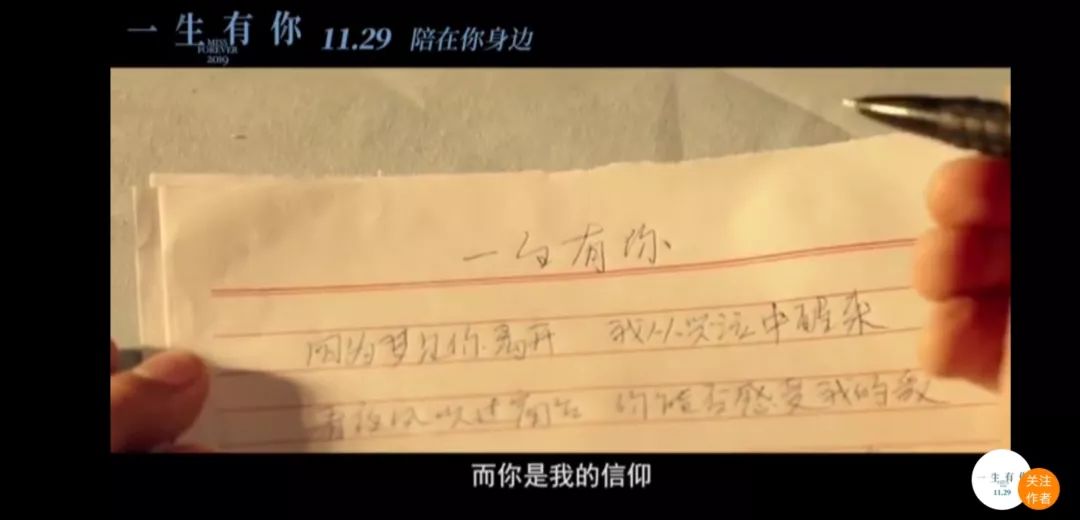 一生有你
MISS
FOREVER
2019
11.29 陪在你身边
一生有你
因为梦见你离开 我从哭泣中醒来
看夜风吹过窗台 你能否感受我的爱
而你是我的信仰
一生有你
11.29
关注
作者